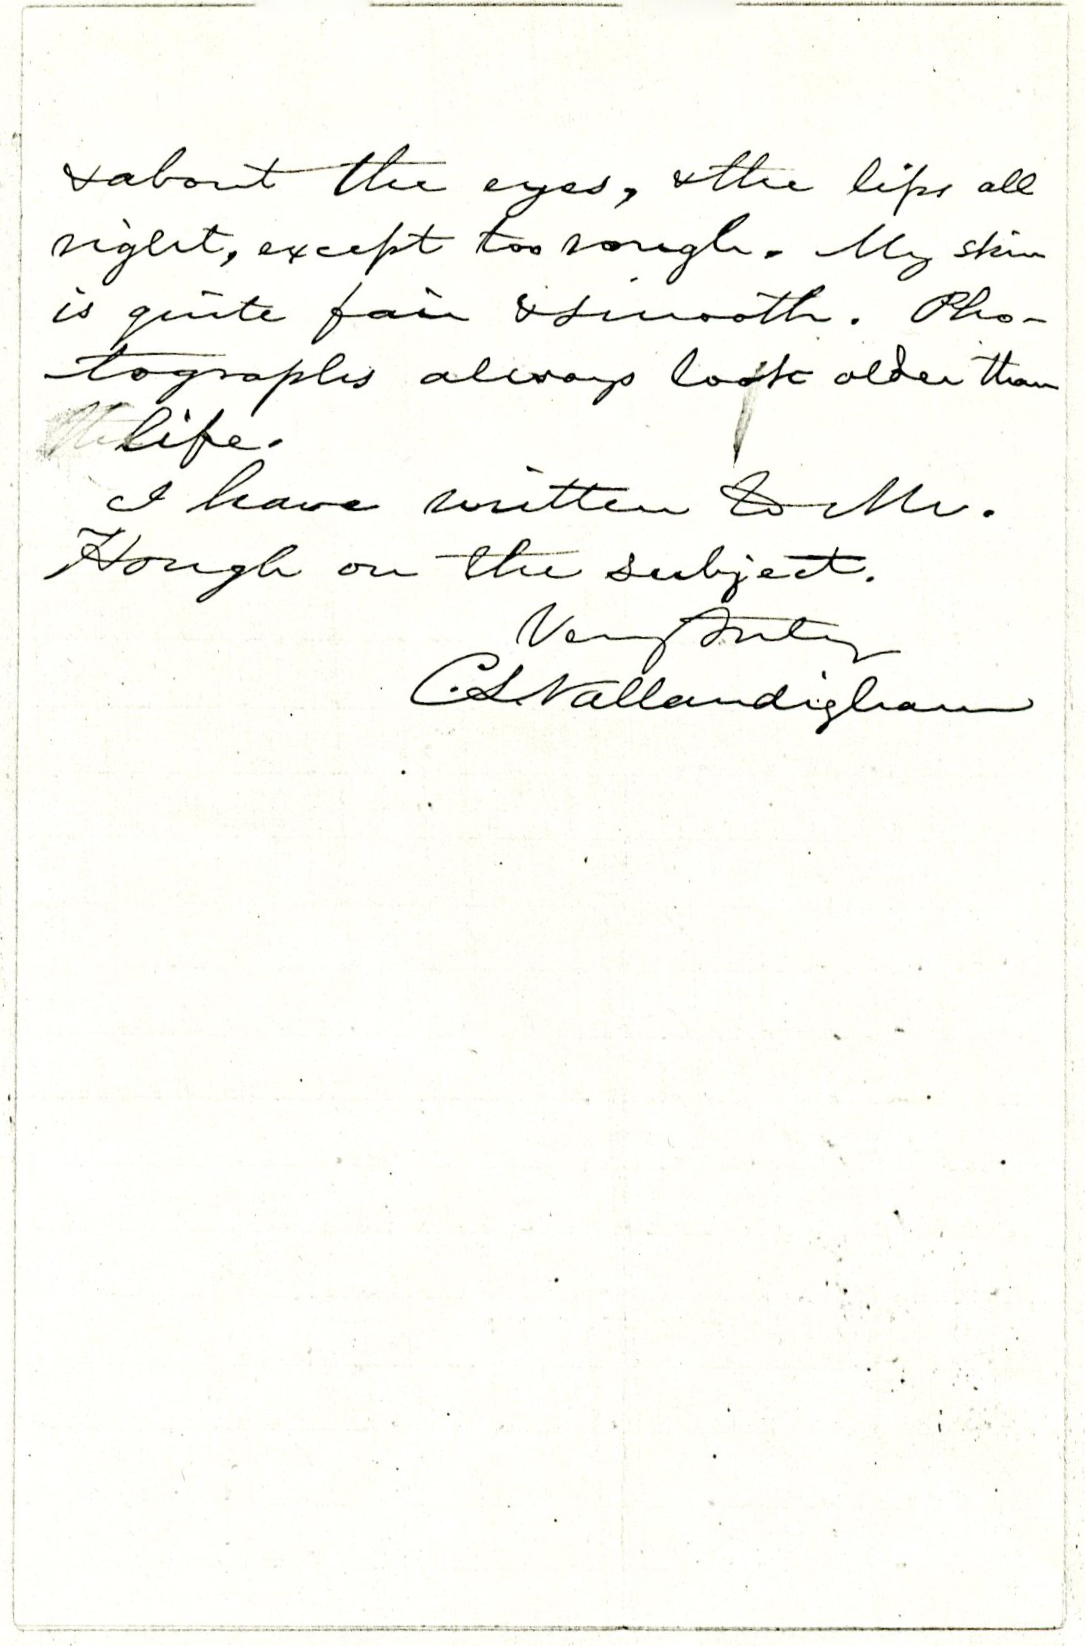 & about the eyes, & the lips all
right, except too rough. My skin
is quite fair & smooth. Pho-
tographs always look older than
life.
I have written to Mr.
Hough on the subject.
Very truly
C. L. Vallandigham